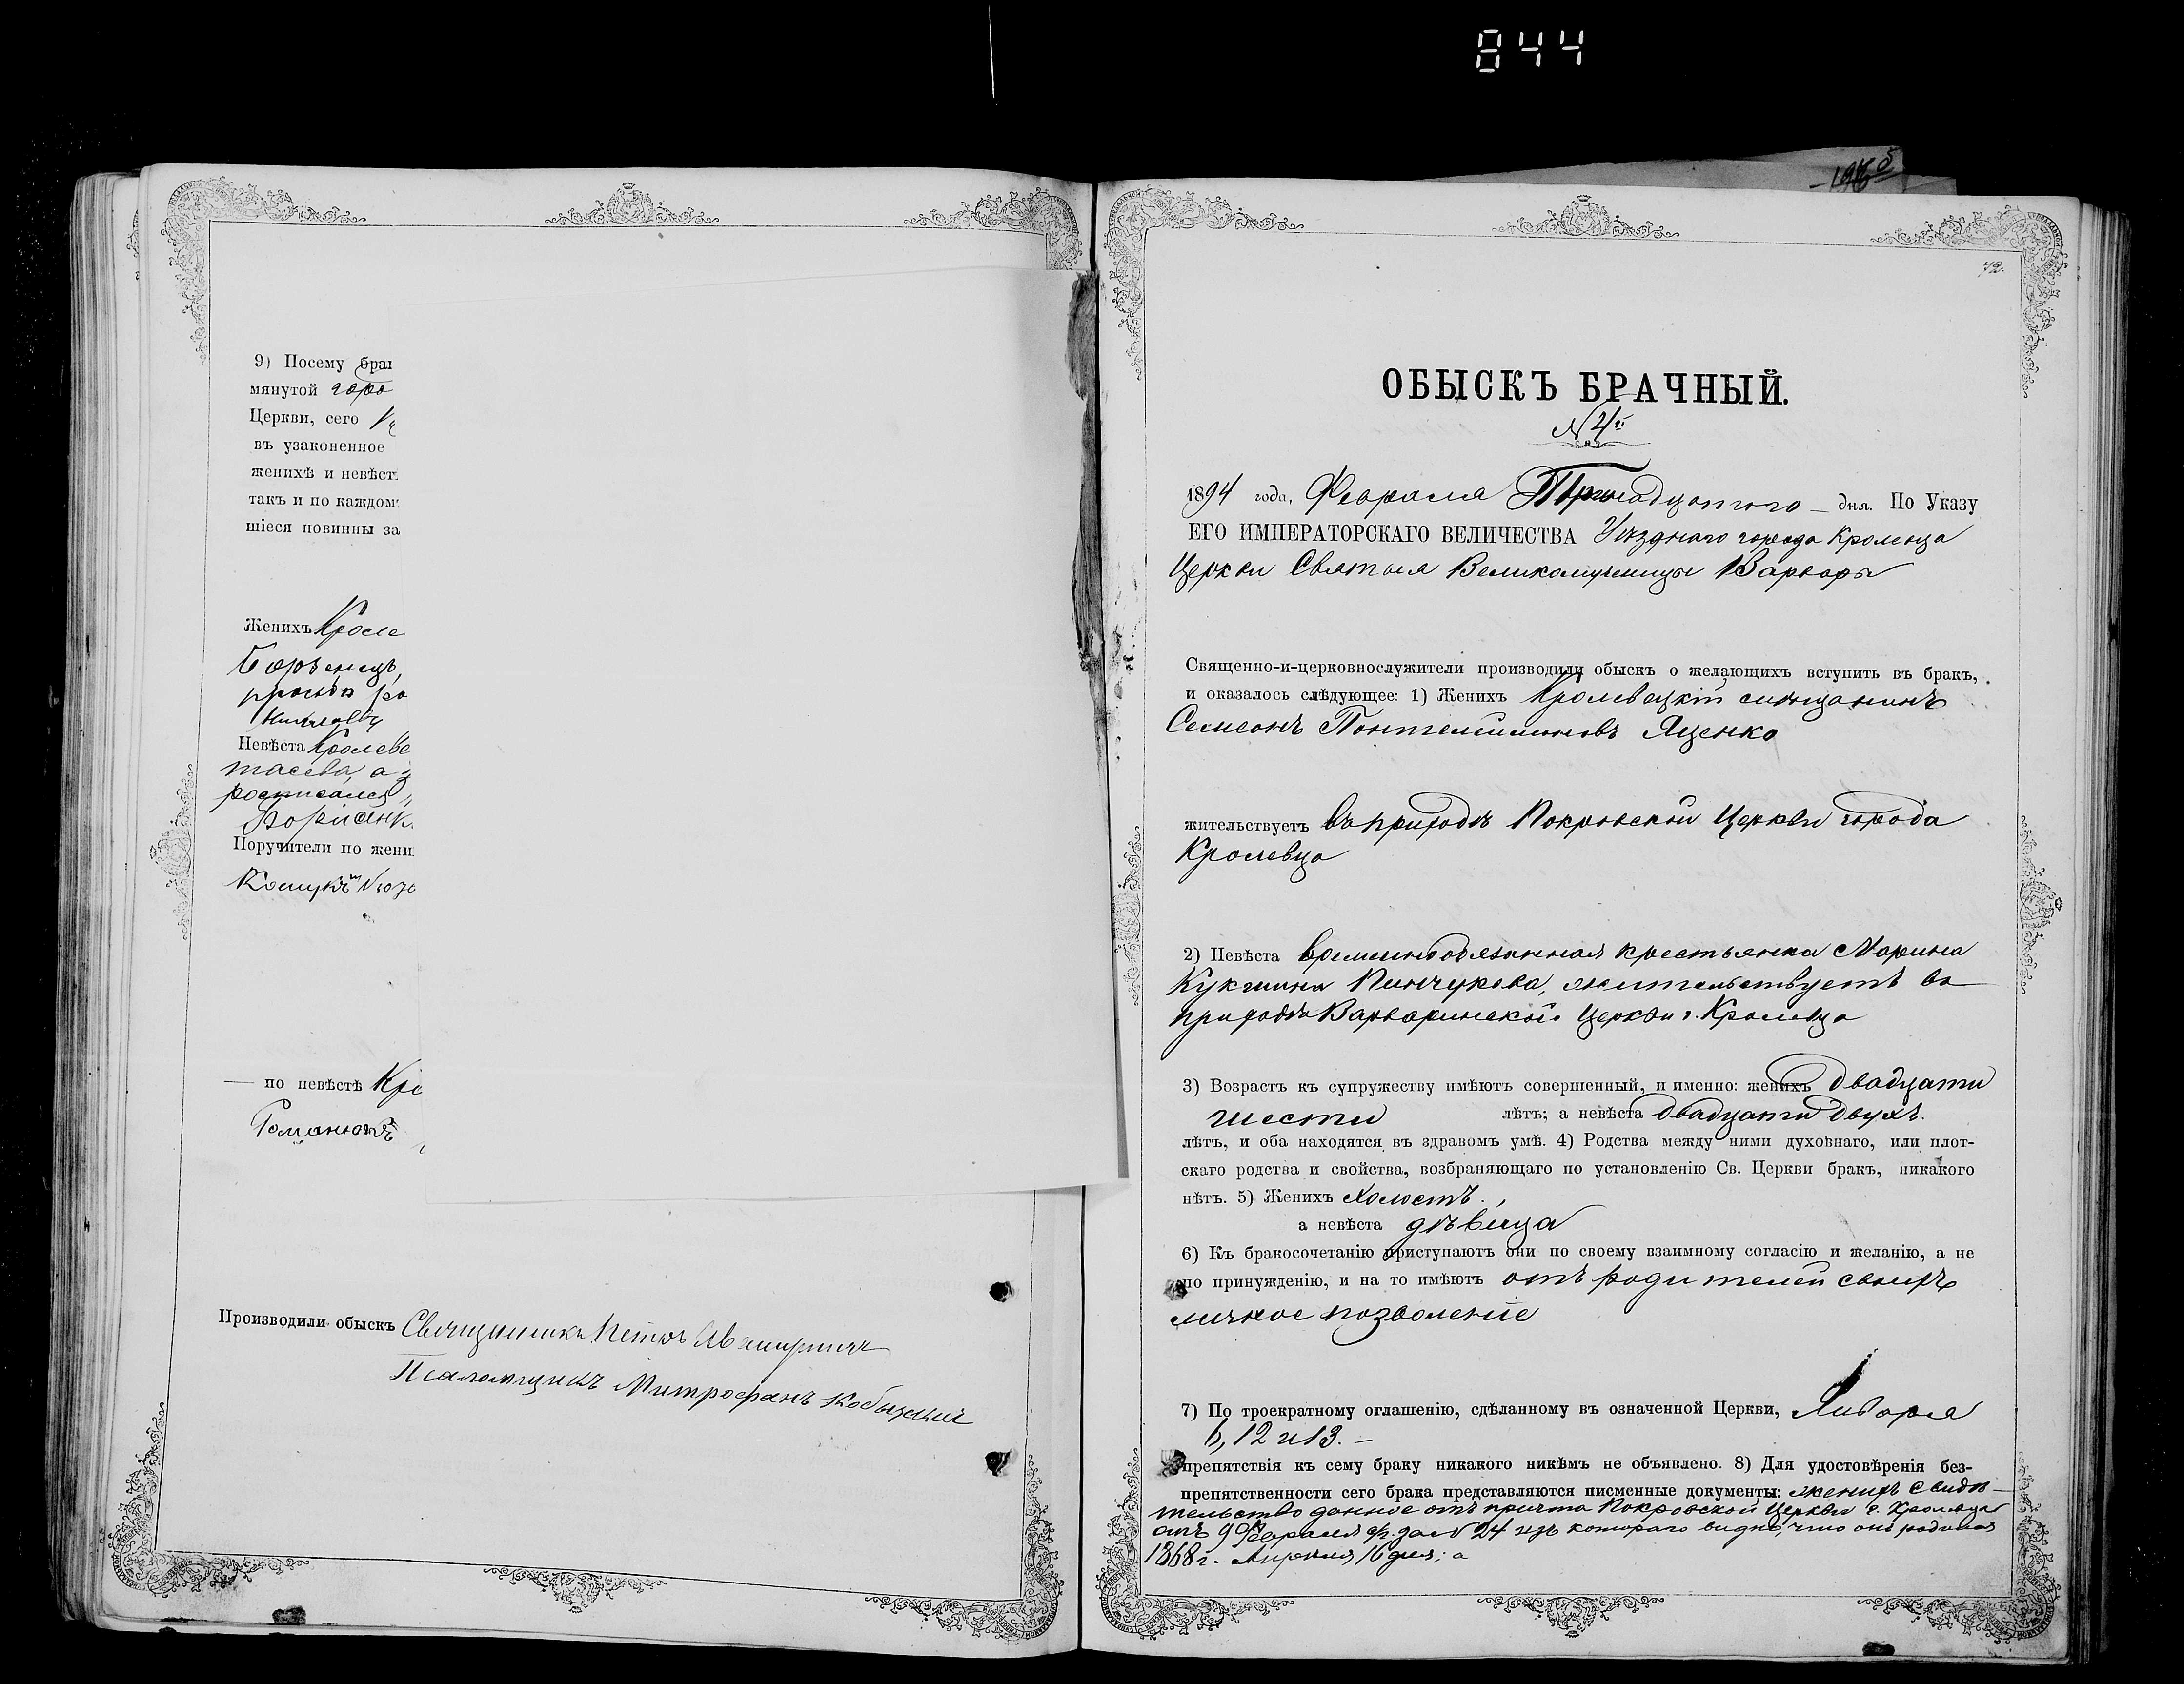 844
9) Посему брак
мянутой горо
Церкви, сего
въ узаконенное
женихѣ и невѣст
такъ и по каждом
шіеся повинны за
Женихъ Кроле
Невѣста Кролеве
росписался
Борисенк
Поручители по жени
— по невѣстѣ Кро
Романюкъ
Производили обыскъ Священникъ Петръ
Псаломщикъ Митрофанъ Кобызкій
72.
ОБЫСКЪ БРАЧНЫЙ.
№ 4й
1894 года, Февраля Тринадцатого — дня. По Указу
ЕГО ИМПЕРАТОРСКАГО ВЕЛИЧЕСТВА Уѣзднаго города Кролевца
Церкви Святыя Великомученицы Варвары
Священно-и-церковнослужители производили обыскъ о желающихъ вступить въ бракъ,
и оказалось слѣдующее: 1) Женихъ Кролевецкій мѣщанинъ
Семеонъ Пантелеимоновъ Яценко
жительствуетъ въ приходѣ Покровской Церкви города
Кролевца
2) Невѣста временнообязанная крестьянка Марина
Пинчукова, жительствуетъ въ
приходѣ Варваринской Церкви г. Кролевца
3) Возрастъ къ супружеству имѣютъ совершенный, и именно: женихъ двадцати
шести лѣтъ; а невѣста двадцати двухъ.
лѣтъ, и оба находятся въ здравомъ умѣ. 4) Родства между ними духовнаго, или плот-
скаго родства и свойства, возбраняющаго по установленію Св. Церкви бракъ, никакого
нѣтъ. 5) Женихъ холостъ.,
а невѣста дѣвица
6) Къ бракосочетанію приступаютъ они по своему взаимному согласію и желанію, а не
по принужденію, и на то имѣютъ отъ родителей своихъ
личное позволеніе
7) По троекратному оглашенію, сдѣланному въ означенной Церкви, Января
6, 12 и 13. —
препятствія къ сему браку никакого никѣмъ не объявлено. 8) Для удостовѣренія без-
препятственности сего брака представляются писменные документы: женихъ свидѣ-
тельство данное отъ причта Покровской Церкви г. Кролевца
отъ 9 Февраля за № 24 изъ котораго видно, что онъ родился
1868 г. Апрѣля 16 дня; а